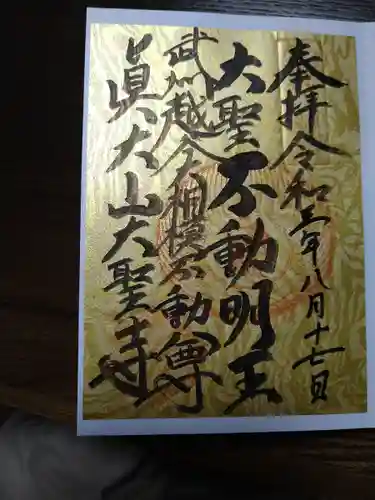 奉拝 令和三年八月十七日
大聖不動明王
武州越今相模不動尊
眞大山大聖寺